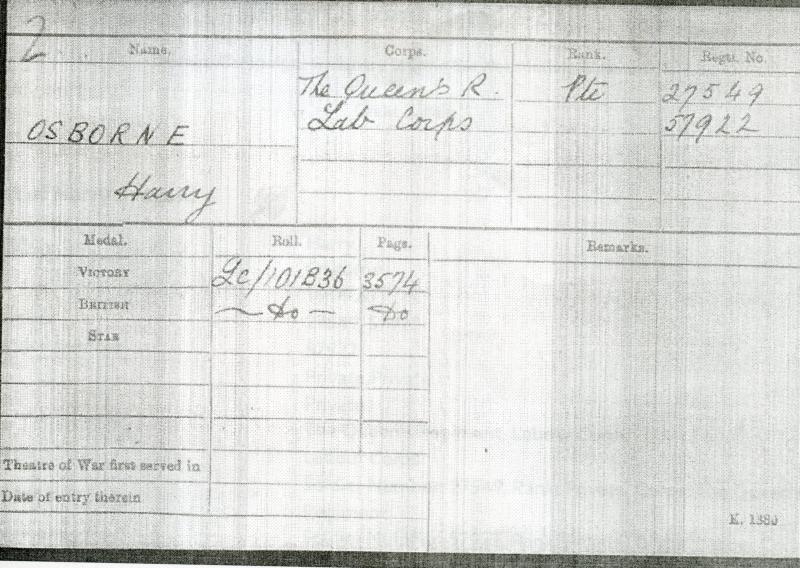 2
Name. Corps. Rank. Regtl. No.
The Queen's R. Pte 27549
OSBORNE Lab Corps 57922
Harry
Medal. Roll. Page. Remarks.
VICTORY Lc/101B36 3574
BRITISH — do — do
STAR
Theatre of War first served in
Date of entry therein
K. 1380